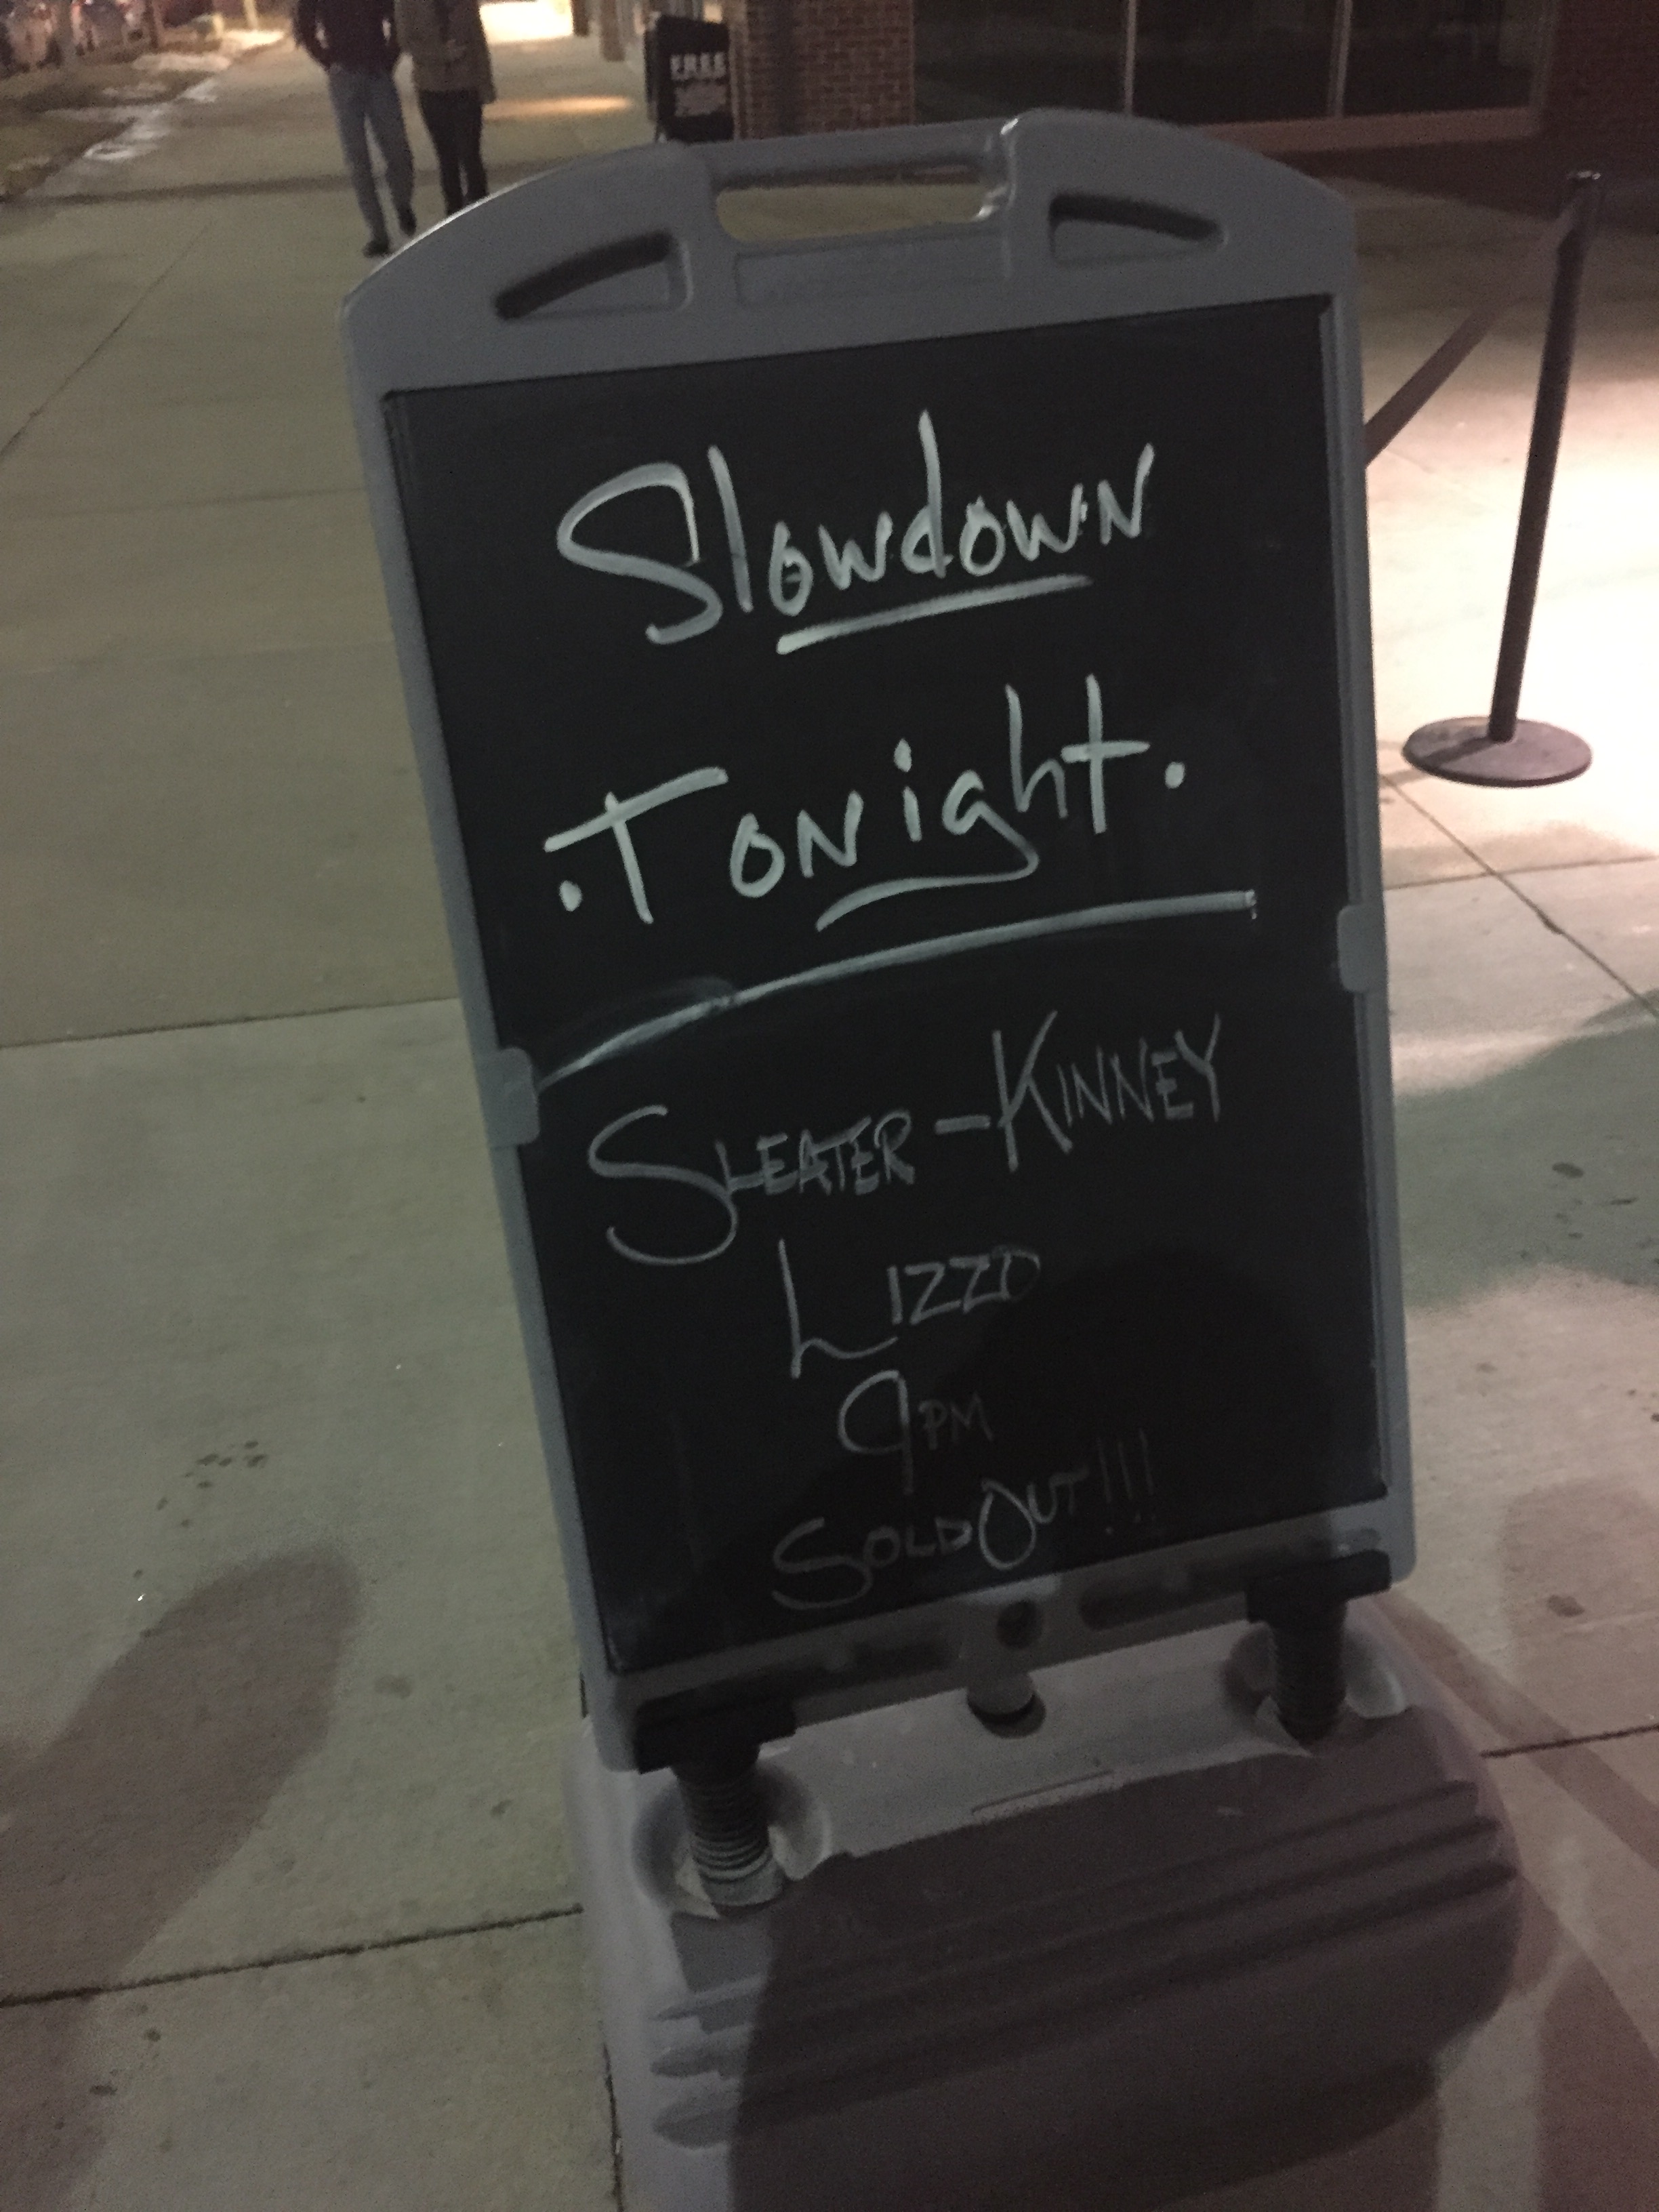 FREE
Slowdown
.Tonight.
SLEATER-KINNEY
LIZZO
9PM
SOLD OUT!!!